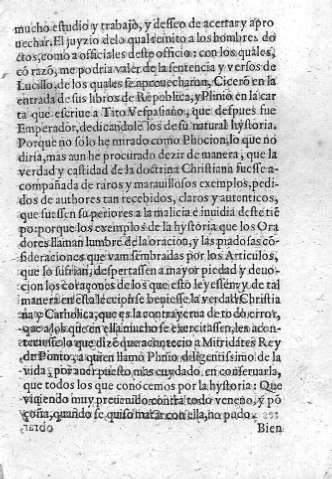 mucho estudio y trabajo, y desseo de acertar y apro
uechar. El juyzio de lo qual remito a los hombres do
ctos, como a officiales deste officio: con los quales,
cõ razõ, me podria valer de la sentencia y versos de
Lucillo, de los quales se aprouecharan, Cicerõ en la
entrada de sus libros de Republica, y Plinio en la car
ta que escriue a Tito Vespasiano, que despues fue
Emperador, dedicandole los de su natural hystoria.
Porque no solo he mirado como Phocion, lo que no
diria, mas aun he procurado dezir de manera, que la
verdad y castidad de la doctrina Christiana fuesse a-
compañada de raros y marauillosos exemplos, pedi-
dos de authores tan recebidos, claros y autenticos,
que fuessen superiores a la malicia e inuidia deste tiẽ
po: porque los exemplos de la hystoria que los Ora
dores llaman lumbre de la oracion, y las piadosas cõ
sideraciones que van sembradas por los Articulos,
que lo sufrian, despertassen a mayor piedad y deuo-
cion los coraçones de los que esto leyessen, y de tal
manera en esta lecciõ se beuiesse la verdad Christia
na y Catholica, que es la contrayerua de todo error,
que a los que en ella mucho se exercitassen, les acon-
teciesse lo que dizẽ que acontecio a Mitridates Rey
de Ponto, a quien llamò Plinio diligentissimo de la
vida, por auer puesto mas cuydado en conseruarla,
que todos los que conocemos por la hystoria: Que
viuiendo muy preuenido contra todo veneno, y põ
çoña, quando se quiso matar con ella, no pudo.
Bien